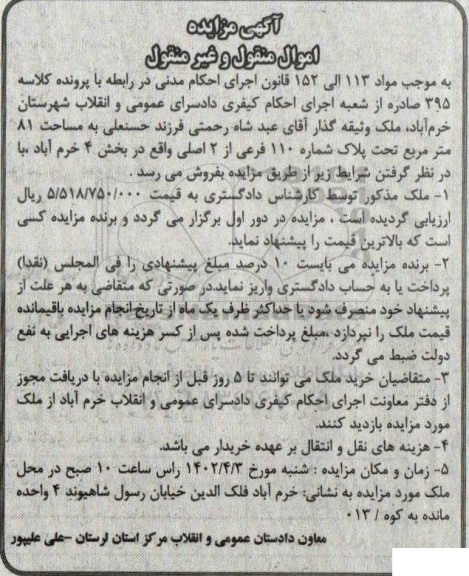 آگهی مزایده
اموال منقول و غیر منقول
به موجب مواد ۱۱۳ الی ۱۵۲ قانون اجرای احکام مدنی در رابطه با پرونده کلاسه
۳۹۵ صادره از شعبه اجرای احکام کیفری دادسرای عمومی و انقلاب شهرستان
خرم‌آباد، ملک وثیقه گذار آقای عبد شاه رحمتی فرزند حسنعلی به مساحت ۸۱
متر مربع تحت پلاک شماره ۱۱۰ فرعی از ۲ اصلی واقع در بخش ۴ خرم آباد ،با
در نظر گرفتن شرایط زیر از طریق مزایده بفروش می رسد .
۱- ملک مذکور توسط کارشناس دادگستری به قیمت ۵/۵۱۸/۷۵۰/۰۰۰ ریال
ارزیابی گردیده است ، مزایده در دور اول برگزار می گردد و برنده مزایده کسی
است که بالاترین قیمت را پیشنهاد نماید.
۲- برنده مزایده می بایست ۱۰ درصد مبلغ پیشنهادی را فی المجلس (نقدا)
پرداخت یا به حساب دادگستری واریز نماید.در صورتی که متقاضی به هر علت از
پیشنهاد خود منصرف شود یا حداکثر ظرف یک ماه از تاریخ انجام مزایده باقیمانده
قیمت ملک را نپردازد ،مبلغ پرداخت شده پس از کسر هزینه های اجرایی به نفع
دولت ضبط می گردد.
۳- متقاضیان خرید ملک می توانند تا ۵ روز قبل از انجام مزایده با دریافت مجوز
از دفتر معاونت اجرای احکام کیفری دادسرای عمومی و انقلاب خرم آباد از ملک
مورد مزایده بازدید کنند.
۴- هزینه های نقل و انتقال بر عهده خریدار می باشد.
۵- زمان و مکان مزایده : شنبه مورخ ۱۴۰۲/۴/۳ راس ساعت ۱۰ صبح در محل
ملک مورد مزایده به نشانی: خرم آباد فلک الدین خیابان رسول شاهیوند ۴ واحده
مانده به کوه / ۰۱۳
معاون دادستان عمومی و انقلاب مرکز استان لرستان -علی علیپور